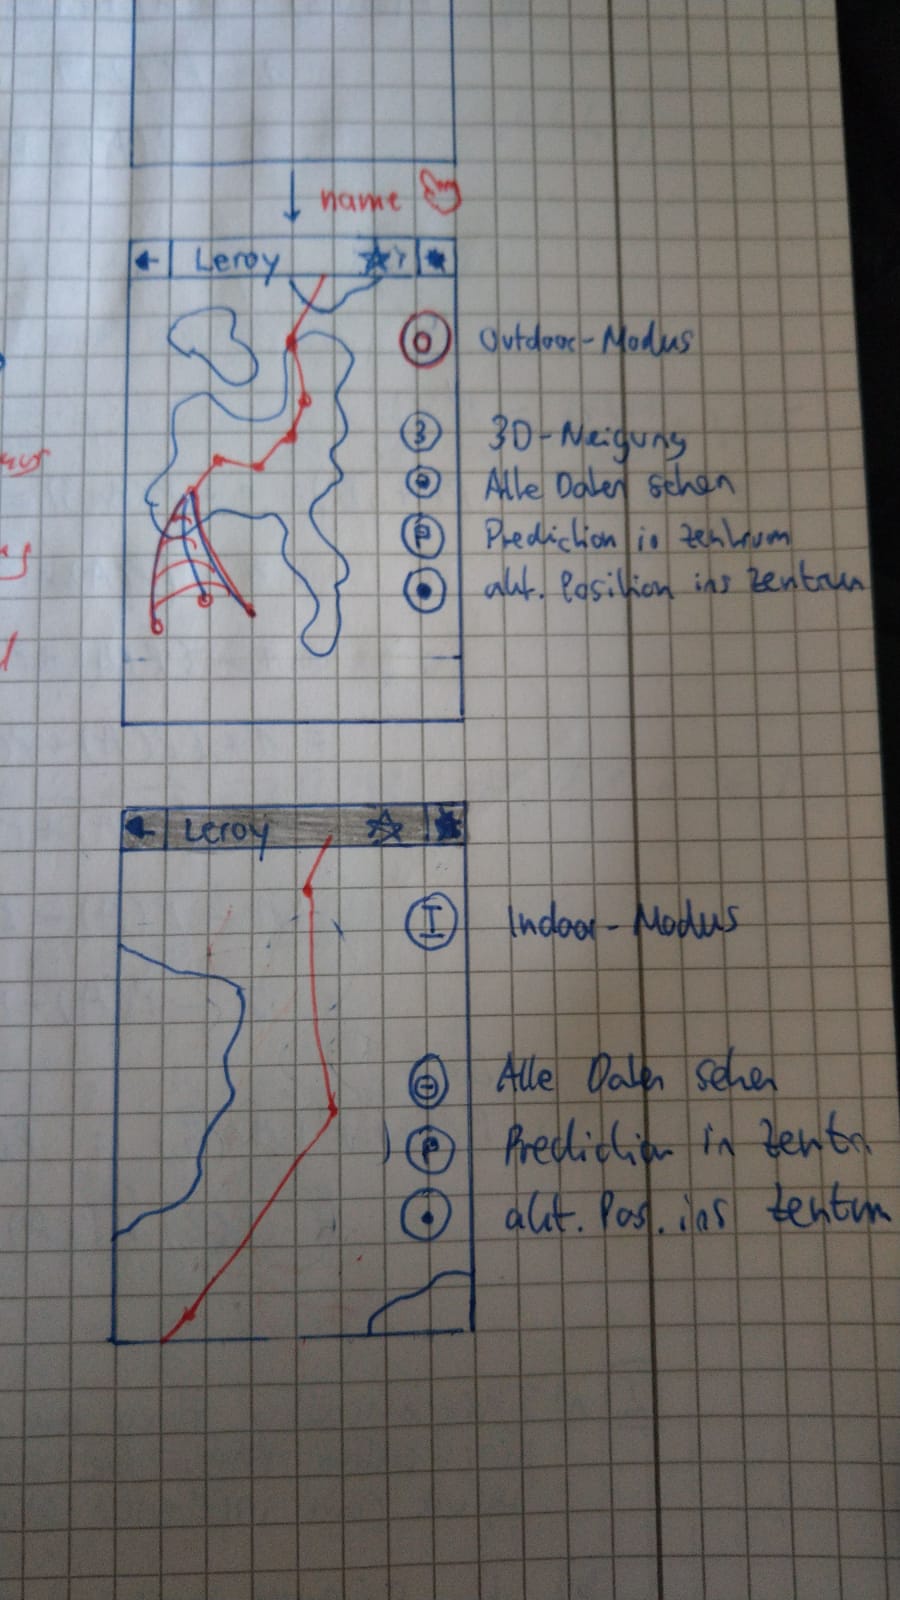 name
Leroy
O Outdoor-Modus
3 3D-Neigung
Alle Daten sehen
P Prediction in Zentrum
akt. Position ins Zentrum
Leroy
I Indoor-Modus
Alle Daten sehen
P Prediction in Zentr
akt. Pos. ins Zentrum